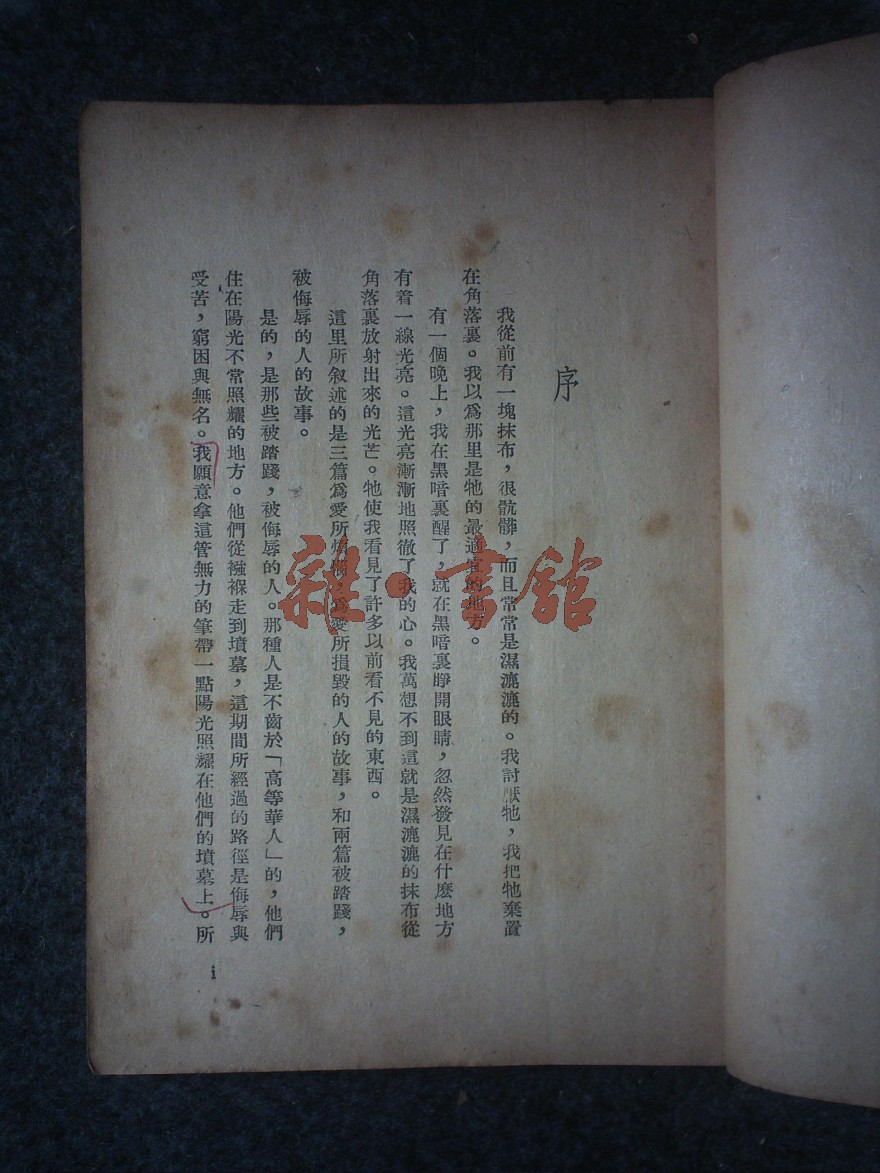 序
我從前有一塊抹布，很骯髒，而且常常是濕漉漉的。我討厭牠，我把牠棄置
在角落裏。我以爲那里是牠的最適宜的地方。
有一個晚上，我在黑暗裏醒了，就在黑暗裏睜開眼睛，忽然發見在什麽地方
有着一線光亮。這光亮漸漸地照徹了我的心。我萬想不到這就是濕漉漉的抹布從
角落裏放射出來的光芒。牠使我看見了許多以前看不見的東西。
這里所叙述的是三篇爲愛所煩惱，爲愛所損毀的人的故事，和兩篇被踏踐，
被侮辱的人的故事。
是的，是那些被踏踐，被侮辱的人。那種人是不齒於「高等華人」的，他們
住在陽光不常照耀的地方。他們從襁褓走到墳墓，這期間所經過的路徑是侮辱與
受苦，窮困與無名。我願意拿這管無力的筆帶一點陽光照耀在他們的墳墓上。所
i
雜·書館